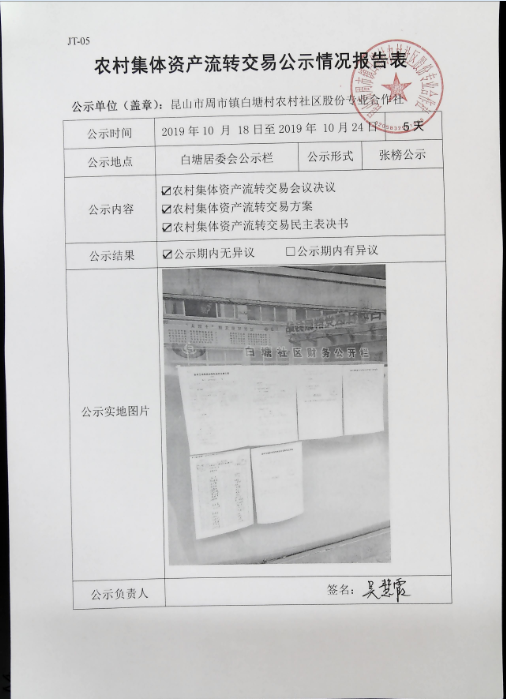 JT-05
农村集体资产流转交易公示情况报告表
公示单位（盖章）：昆山市周市镇白塘村农村社区股份专业合作社
公示时间 2019 年 10 月 18 日至 2019 年 10 月 24 日 5 天
公示地点 白塘居委会公示栏 公示形式 张榜公示
公示内容 ☑农村集体资产流转交易会议决议
☑农村集体资产流转交易方案
☑农村集体资产流转交易民主表决书
公示结果 ☑公示期内无异议 □公示期内有异议
公示实地图片
白塘社区财务公示栏
公示负责人 签名：吴慧霞